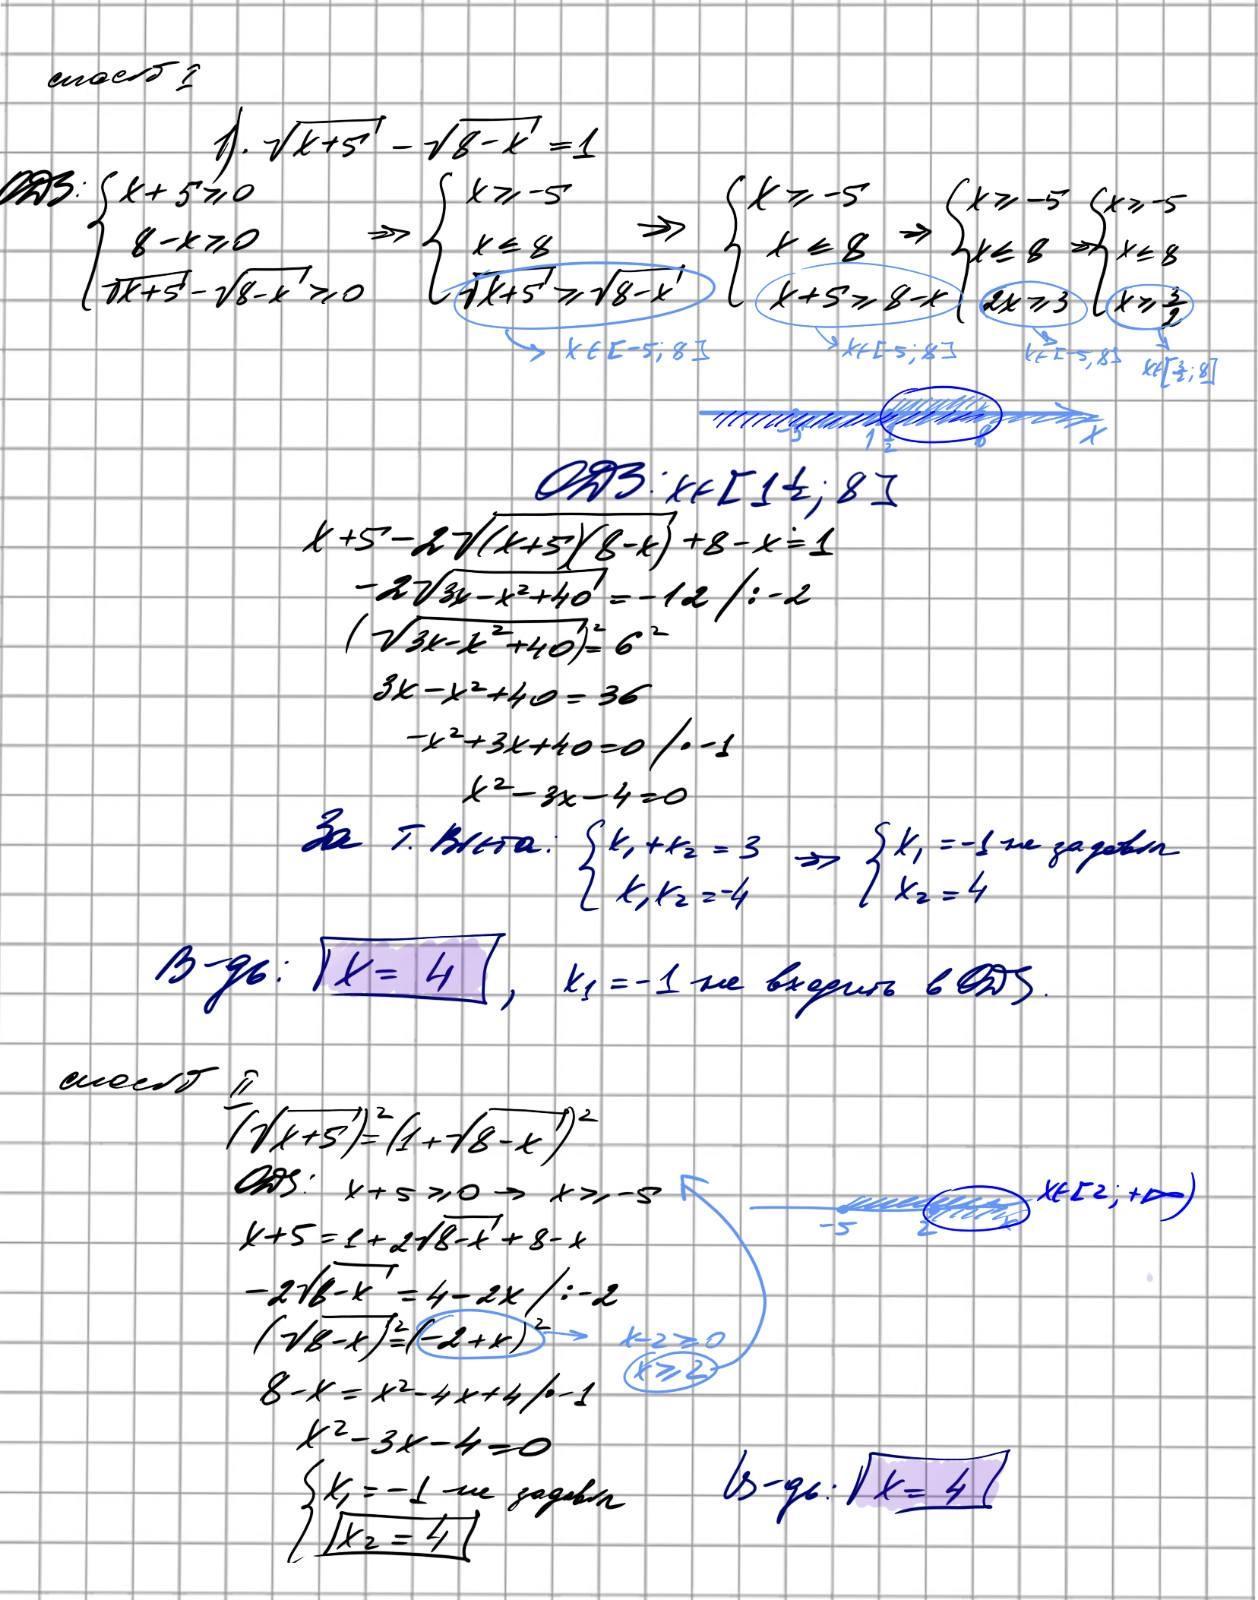 спосіб I
1). √(x+5) − √(8−x) = 1
ОДЗ: { x+5≥0 ⇒ { x≥−5 ⇒ { x≥−5 ⇒ { x≥−5 ⇒ { x≥−5
8−x≥0 x≤8 x≤8 x≤8 x≤8
√(x+5)−√(8−x)≥0 √(x+5)≥√(8−x) x+5≥8−x 2x≥3 x≥3/2
x∈[−5;8] x∈[−5;8] x∈[−5;8] x∈[3/2;8]
−5 1 1/2 8 x
ОДЗ: x∈[1 1/2; 8]
x+5−2√((x+5)(8−x))+8−x=1
−2√(3x−x²+40) = −12 /:−2
(√(3x−x²+40))²=6²
3x−x²+40=36
−x²+3x+40=0 /·−1
x²−3x−4=0
За т. Вієта: { x₁+x₂=3 ⇒ { x₁=−1 не задовол
x₁x₂=−4 x₂=4
В-дь: x=4, x₁=−1 не входить в ОДЗ.
спосіб II
(√(x+5))²=(1+√(8−x))²
ОДЗ: x+5≥0 → x≥−5
−5 2 x x∈[2;+∞)
x+5=1+2√(8−x)+8−x
−2√(8−x)=4−2x /:−2
(√(8−x))²=(−2+x)² → x−2≥0
x≥2
8−x=x²−4x+4 /·−1
x²−3x−4=0
{ x₁=−1 не задовол
x₂=4
В-дь: x=4